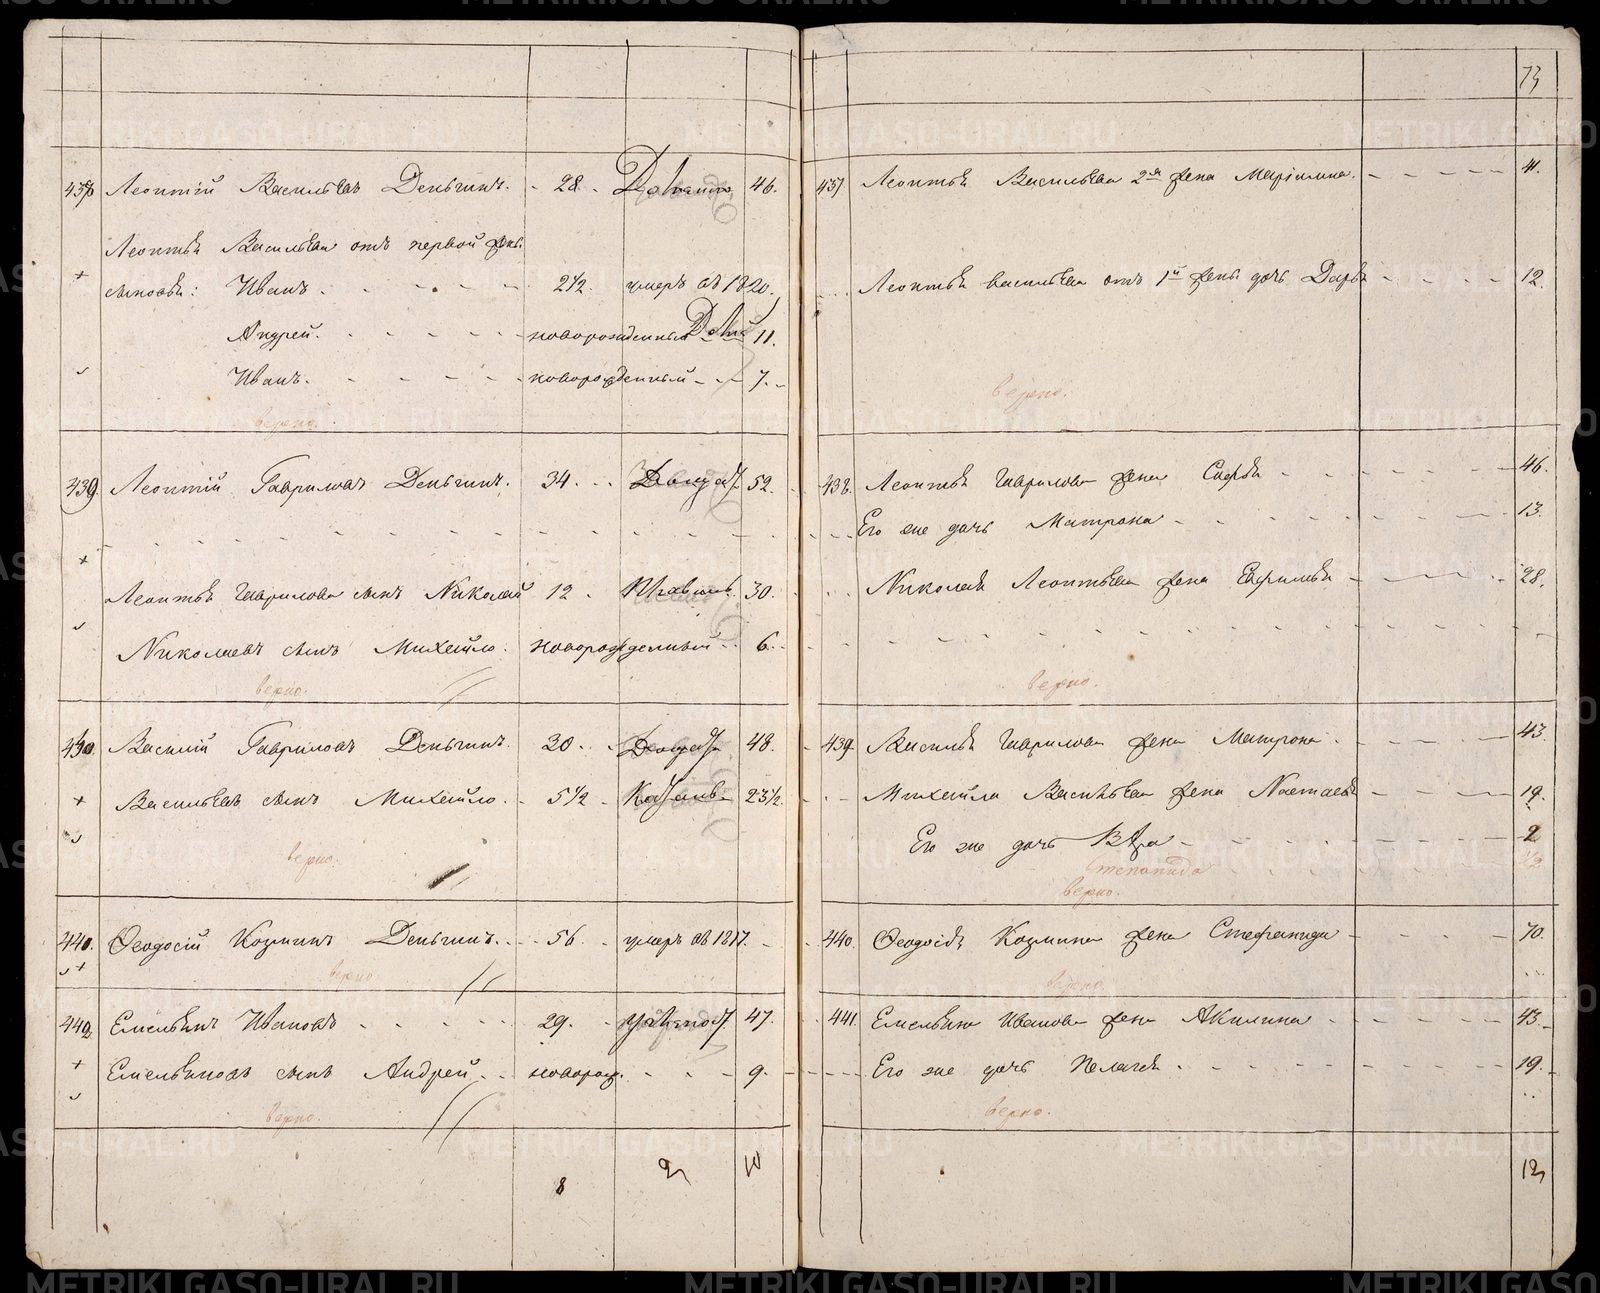 73
Леонтій Васильевъ Деньгинъ. 28. 46.
Леонтья Васильева отъ первой жены
сыновья: Иванъ. 2½. умеръ въ 1820.
Андрей. новорожденный 11.
Иванъ. новорожденный 7.
верно.
439 Леонтій Гавриловъ Деньгинъ. 34. 52.
Леонтья Гаврилова сынъ Николай 12. 30.
Николаевъ сынъ Михайло. новорожденный 6.
верно.
Василій Гавриловъ Деньгинъ. 30. 48.
Васильевъ сынъ Михайло. 5½ 23½.
верно.
440. Ѳеодосій Козминъ Деньгинъ. 56. умеръ въ 1817.
верно
Емельянъ Ивановъ 29. 47.
Емельяновъ сынъ Андрей новорож. 9.
верно.
8 10
437 Леонтья Васильева 2я жена Маріамна. 41.
Леонтья Васильева отъ 1й жены дочь Дарья 12.
верно.
438. Леонтья Гаврилова жена Софья 46.
Его же дочь Матрона 13.
Николая Леонтьева жена Евфимья 28.
верно.
439. Василья Гаврилова жена Матрона 43
Михайла Васильева жена Настасья 19.
Его же дочь 2
Степанида ½
верно.
440. Ѳеодосія Козмина жена Стефанида 70.
верно
441. Емельяна Иванова жена Акилина 43.
Его же дочь Пелагея 19.
верно.
12
METRIKI.GASO-URAL.RU